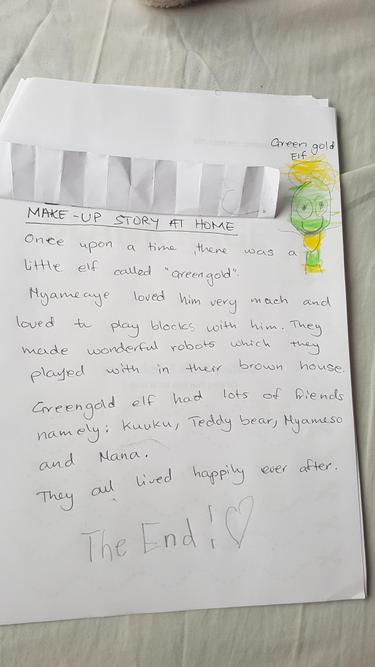 Green gold
Elf
MAKE-UP STORY AT HOME
Once upon a time, there was a
little elf called "Greengold".
Nyameaye loved him very much and
loved to play blocks with him. They
made wonderful robots which they
played with in their brown house.
Greengold elf had lots of friends
namely: kuuku, Teddy bear, Nyameso
and Nana.
They all lived happily ever after.
The End!